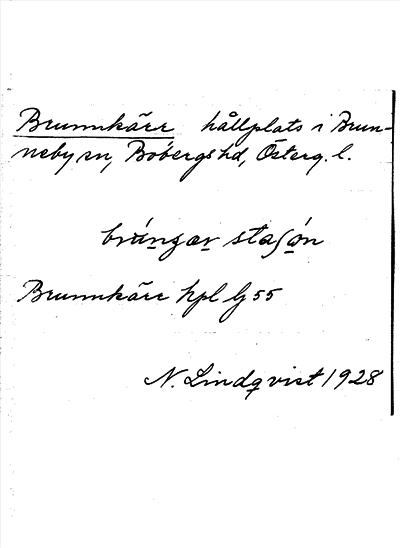 Brunnkärr hållplats i Brun-
neby sn, Bobergs hd, Österg. l.
staʃón
Brunnkärr hpl Lj 55
N. Lindqvist 1928